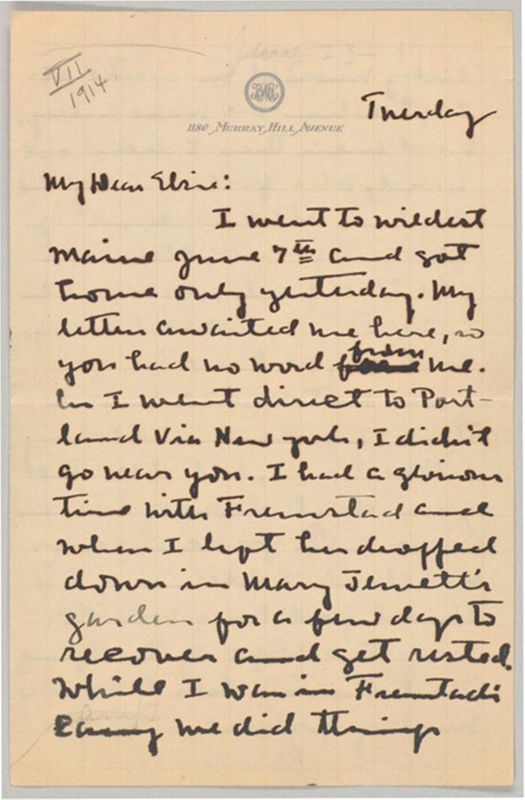 VII
1914
1180 Murray Hill Avenue
Tuesday
My Dear Elsie:
I went to wildest
Maine June 7th and got
home only yesterday. My
letters awaited me here, so
you had no word from me.
As I went direct to Port-
land via New York, I didn't
go near you. I had a glorious
time with Fremstad and
when I left her dropped
down in Mary Jewett's
garden for a few days to
recover and get rested.
While I was in Fremstad's
camp we did things